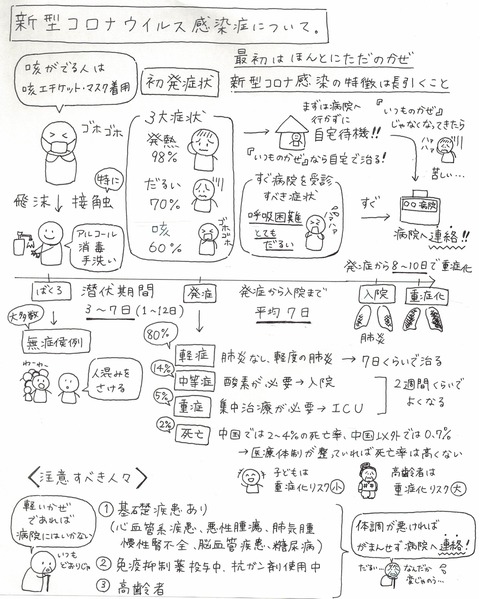 新型コロナウイルス感染症について。
咳がでる人は
咳エチケット・マスク着用
ゴホゴホ
飛沫 特に 接触
アルコール
消毒
手洗い
初発症状
3大症状
発熱
98%
だるい
70%
咳
60%
ゴホゴホ
最初はほんとにただのかぜ
新型コロナ感染の特徴は長引くこと
まずは病院へ
行かずに
自宅待機!!
『いつものかぜ』なら自宅で治る!
『いつものかぜ』
じゃなくなってきたら
ハァハァ
苦しい…
すぐ病院を受診
すべき症状
呼吸困難
とても
だるい
ハァハァ
すぐ
○○病院
病院へ連絡!!
発症から8〜10日で重症化
ばくろ
潜伏期間
3〜7日(1〜12日)
発症
発症から入院まで
平均7日
入院
重症化
肺炎
大多数
無症候例
わ〜わ〜
人混みを
さける
80%
軽症 肺炎なし、軽度の肺炎→7日くらいで治る
14%
中等症 酸素が必要→入院
5%
重症 集中治療が必要→ICU
2週間くらいで
よくなる
2%
死亡 中国では2~4%の死亡率、中国以外では0.7%
→医療体制が整っていれば死亡率は高くない
子どもは
重症化リスク小
高齢者は
重症化リスク大
〈注意すべき人々〉
軽いかぜ
であれば
病院にはいかない
いつも
どおりじゃ
① 基礎疾患あり
(心血管系疾患、悪性腫瘍、肺気腫
慢性腎不全、脳血管疾患、糖尿病)
② 免疫抑制薬投与中、抗ガン剤使用中
③ 高齢者
体調が悪ければ
がまんせず病院へ連絡!
だるい…
なんだか
変じゃのう…